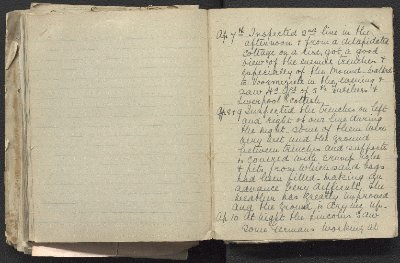 Ap 7th Inspected 2nd line in the
afternoon & from a delapidated
cottage on a rise, got a good
view of the enemies trenches &
especially of the Mound. Walked
to Voormezeele in the evening &
saw Hd Qrs of 5th Fusiliers &
Liverpool Scottish.
Ap 8 & 9 Inspected the trenches on left
and right of our line during
the night. Some of them were
very wet and the ground
between trenches and supports
is covered with
& pits, from which sand bags
had been filled - making an
advance very difficult. The
weather has greatly improved
and the ground is drying up.
Ap. 10 At night the Lincolns saw
some Germans working at